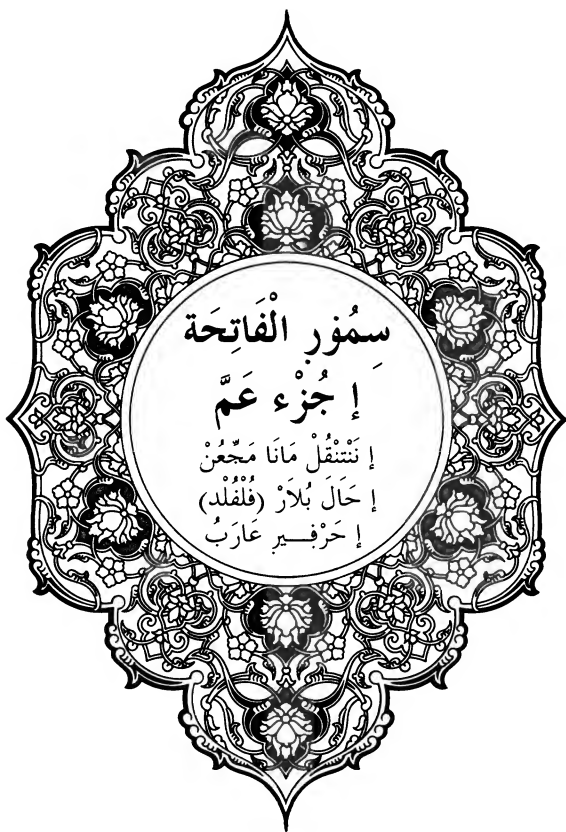 سِمُوْرٖ الْفَاتِحَة
إ جُزْء عَمَّ
إ نَنْتِنْقُلْ مَانَا مَجِّعُنْ
إ حَالَ بُلَارْ (فُلْفُلْد)
إ حَرْفِيرٖ عَارَبُ